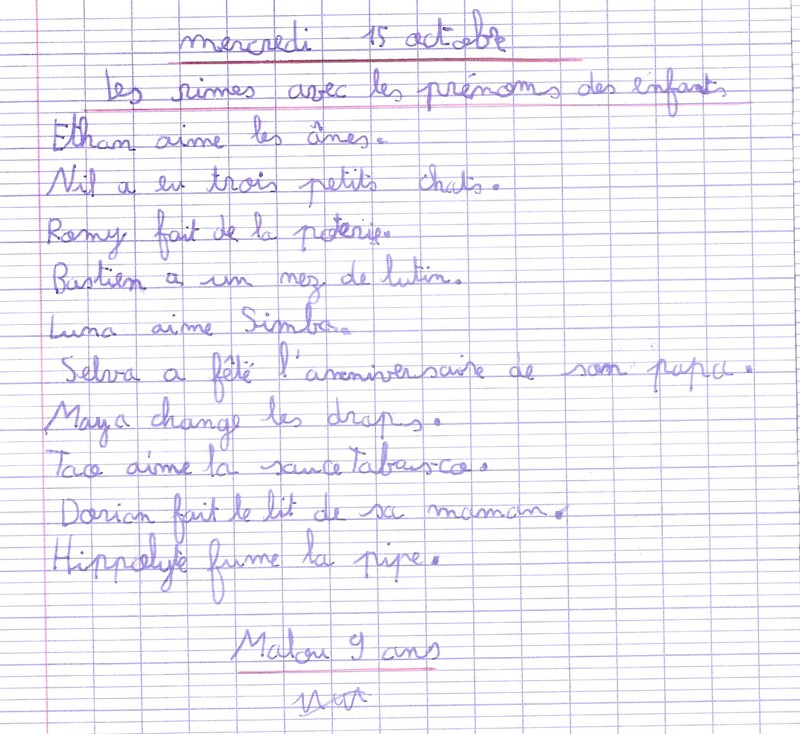 mercredi 15 octobre
Les rimes avec les prénoms des enfants
Ethan aime les ânes.
Nil a eu trois petits chats.
Romy fait de la poterie.
Bastien a un nez de lutin.
Luna aime Simba.
Selva a fêté l'anniversaire de son papa.
Maya change les draps.
Taco aime la sauce Tabasco.
Dorian fait le lit de sa maman.
Hippolyte fume la pipe.
Malou 9 ans